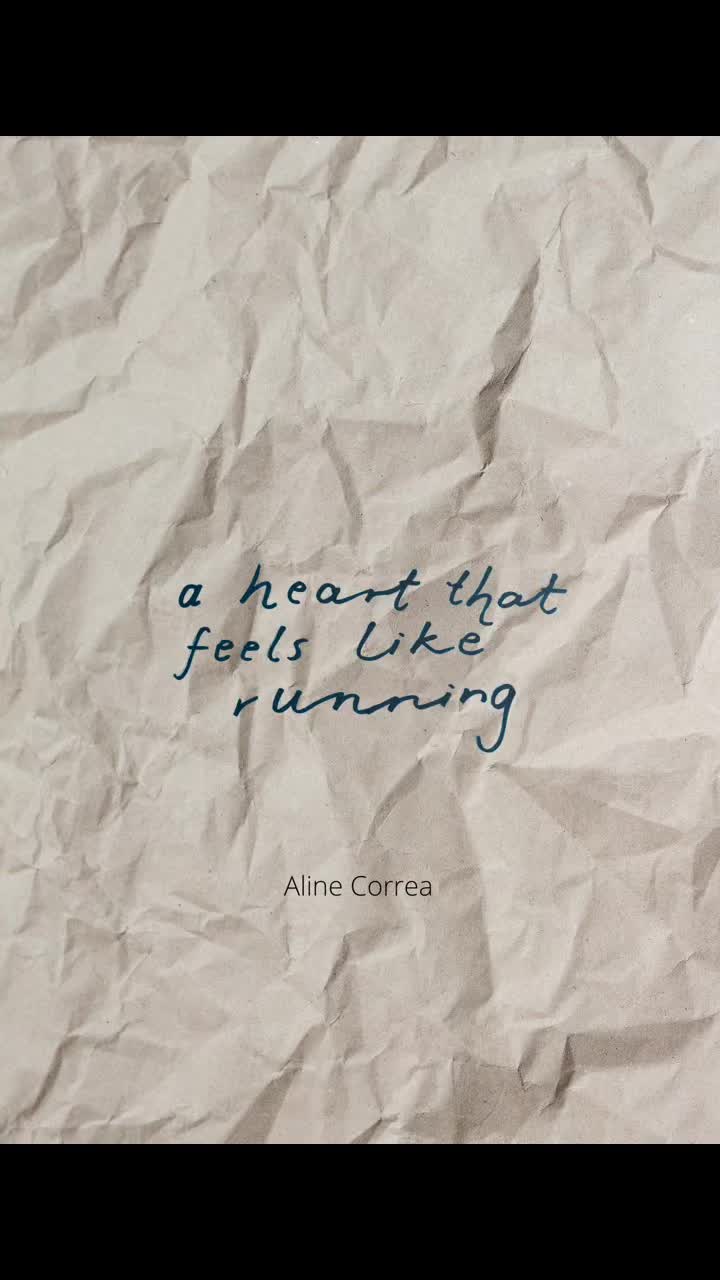 a heart that
feels like
running
Aline Correa